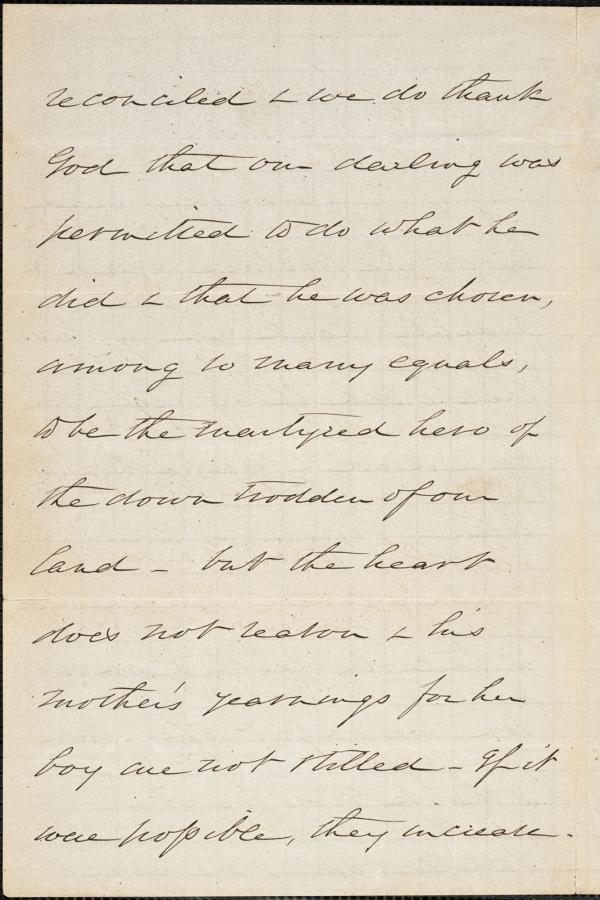 reconciled & we do thank
God that our darling was
permitted to do what he
did & that he was chosen,
among so many equals,
to be the martyred hero of
the down trodden of our
land – but the heart
does not reason & his
mother's yearnings for her
boy are not stilled – If it
were possible, they increase.